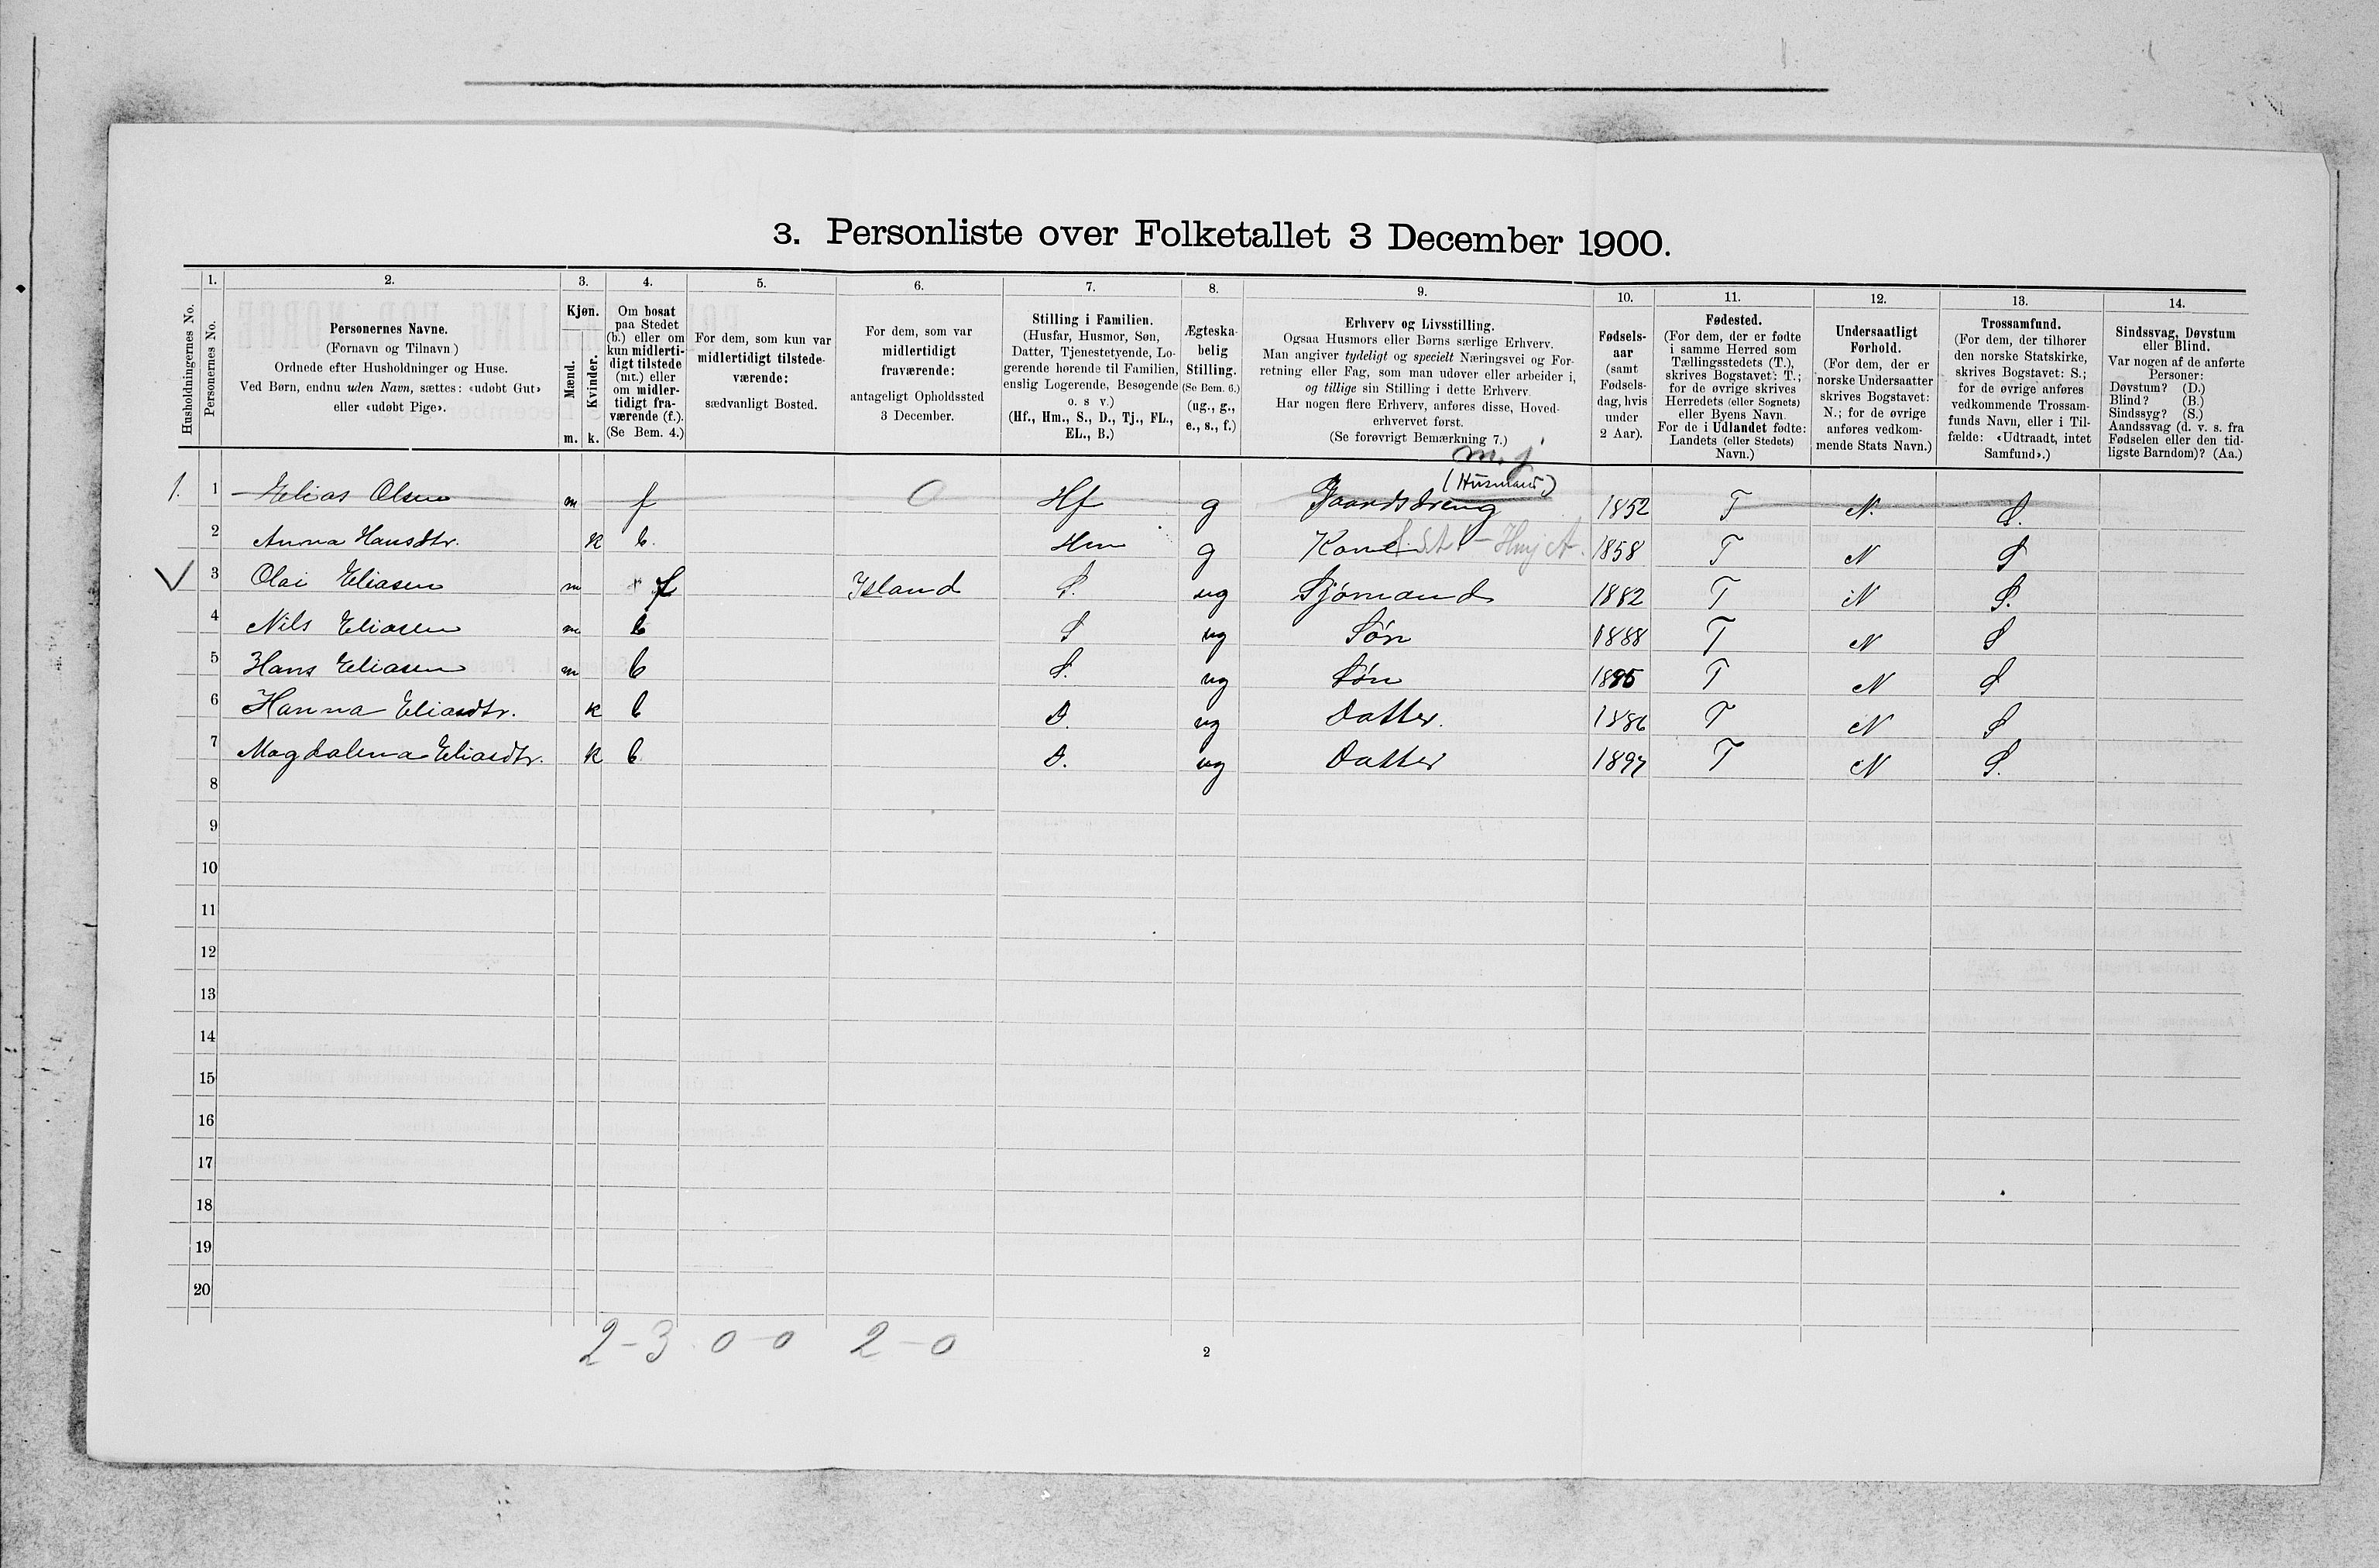 3. Personliste over Folketallet 3 December 1900.
1. 2. 3. 4. 5. 6. 7. 8. 9. 10. 11. 12. 13. 14.
Husholdningernes No.
Personernes No.
Personernes Navne.
(Fornavn og Tilnavn )
Ordnede efter Husholdninger og Huse.
Ved Børn, endnu uden Navn, sættes: «udøbt Gut»
eller «udøbt Pige».
Kjøn.
Mænd.
Kvinder.
m. k.
Om bosat
paa Stedet
(b.) eller om
kun midlerti-
digt tilstede
(mt.) eller
om midler-
tidigt fra-
værende (f.).
(Se Bem. 4.)
For dem, som kun var
midlertidigt tilstede-
værende:
sædvanligt Bosted.
For dem, som var
midlertidigt
fraværende:
antageligt Opholdssted
3 December.
Stilling i Familien.
(Husfar, Husmor, Søn,
Datter, Tjenestetyende, Lo-
gerende hørende til Familien,
enslig Logerende, Besøgende
o. s v.)
(Hf., Hm., S., D., Tj., FL.,
EL., B.)
Ægteska-
belig
Stilling.
(Se Bem. 6.)
(ug., g.,
e., s., f.)
Erhverv og Livsstilling.
Ogsaa Husmors eller Børns særlige Erhverv.
Man angiver tydeligt og specielt Næringsvei og For-
retning eller Fag, som man udøver eller arbeider i,
og tillige sin Stilling i dette Erhverv.
Har nogen flere Erhverv, anføres disse, Hoved-
erhvervet først.
(Se forøvrigt Bemærkning 7.)
Fødsels-
aar
(samt
Fødsels-
dag, hvis
under
2 Aar).
Fødested.
(For dem, der er fødte
i samme Herred som
Tællingsstedets (T.),
skrives Bogstavet: T.;
for de øvrige skrives
Herredets (eller Sognets)
eller Byens Navn.
For de i Udlandet fødte:
Landets (eller Stedets)
Navn.)
Undersaatligt
Forhold.
(For dem, der er
norske Undersaatter
skrives Bogstavet:
N.; for de øvrige
anføres vedkom-
mende Stats Navn.)
Trossamfund.
(For dem, der tilhører
den norske Statskirke,
skrives Bogstavet: S.;
for de øvrige anføres
vedkommende Trossam-
funds Navn, eller i Til-
fælde: «Udtraadt, intet
Samfund».)
Sindssvag, Døvstum
eller Blind.
Var nogen af de anførte
Personer:
Døvstum? (D.)
Blind? (B.)
Sindssyg? (S.)
Aandssvag (d. v. s. fra
Fødselen eller den tid-
ligste Barndom)? (Aa.)
m. j.
(Husmand)
1. 1 Elias Olsen m f 0 Hf g Gaardsdreng 1852 T N. S.
2 Anna Hansdtr. k b. Hm g Kone 1858 T N S
3 Olai Eliasen m f Island S. ug Sjømand 1882 T N S.
4 Nils Eliasen m b S ug Søn 1888 T N S
5 Hans Eliasen m b S. ug Søn 1895 T N S
6 Hanna Eliasdtr. k b D. ug Datter. 1886 T N S
7 Magdalena Eliasdtr. k b D. ug Datter 1897 T N S.
8
9
10
11
12
13
14
15
16
17
18
19
20
2-3 0-0 2-0
2